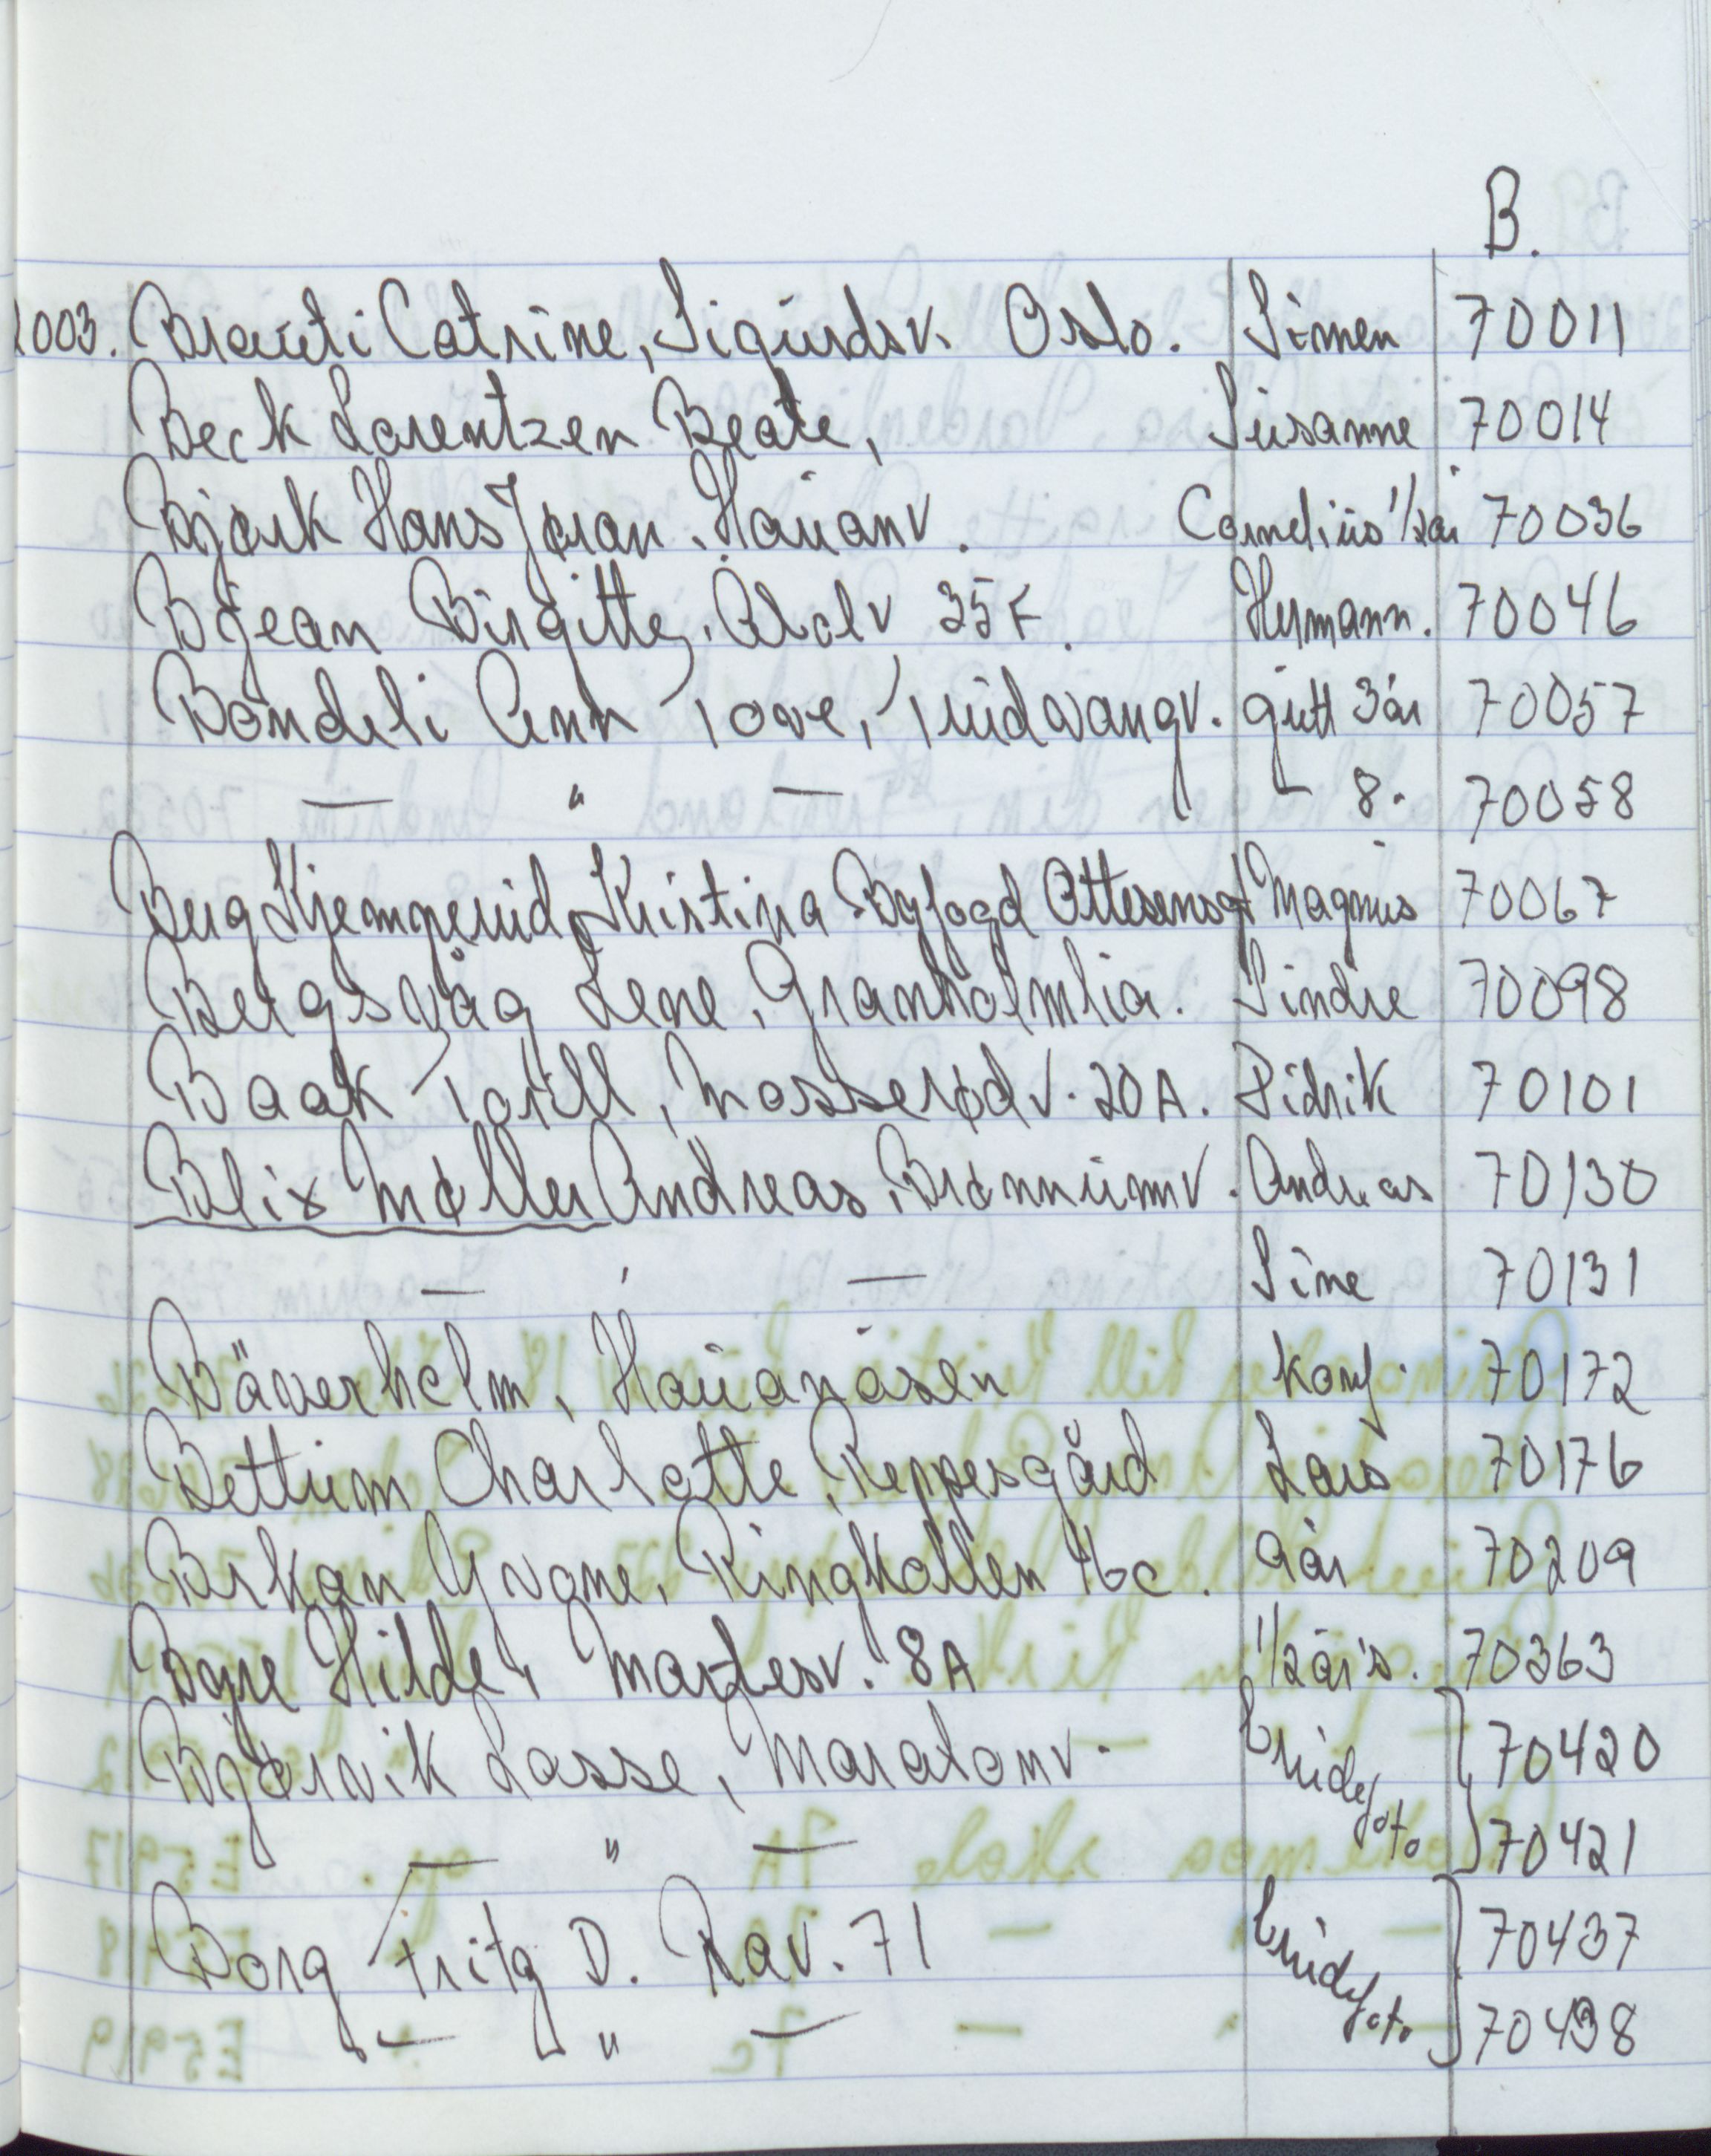 B.
2003. Brauti Catrine, Sigurdsv. Oslo. Simen 70011
Beck Lorentzen Beate, Susanne 70014
Bjørk Hans Jøran, Hauanv. Cornelius 1/2år 70036
Bjean Birgitte, 35F. Hermann. 70046
Bondeli Ann Tove, Tuidvangv. gutt 3år 70057
— " — — 8. 70058
Berg Kjemperud, Kristina Byfogd Ottesensgt Magnus 70067
Bergsvåg Lene, Granholmlia. Sindre 70098
Baak Torill, Mosserødv. 20A. Didrik 70101
Blix Møller Andreas, Brønnumv. Andreas 70130
— " — Sine 70131
Bäverholm, Hauanåsen konf. 70172
Bettum Charlotte, Reppesgård Lars 70176
Birkan Yvone, Ringkollen 16c. 9år 70209
Bye Hilde, Maylesv. 8A 1/2år's. 70363
Bjørvik Lasse, Maratonv. brudefoto 70420
— " — 70421
Borg Fritz D. Rav. 71 brudefoto 70437
— " — 70438